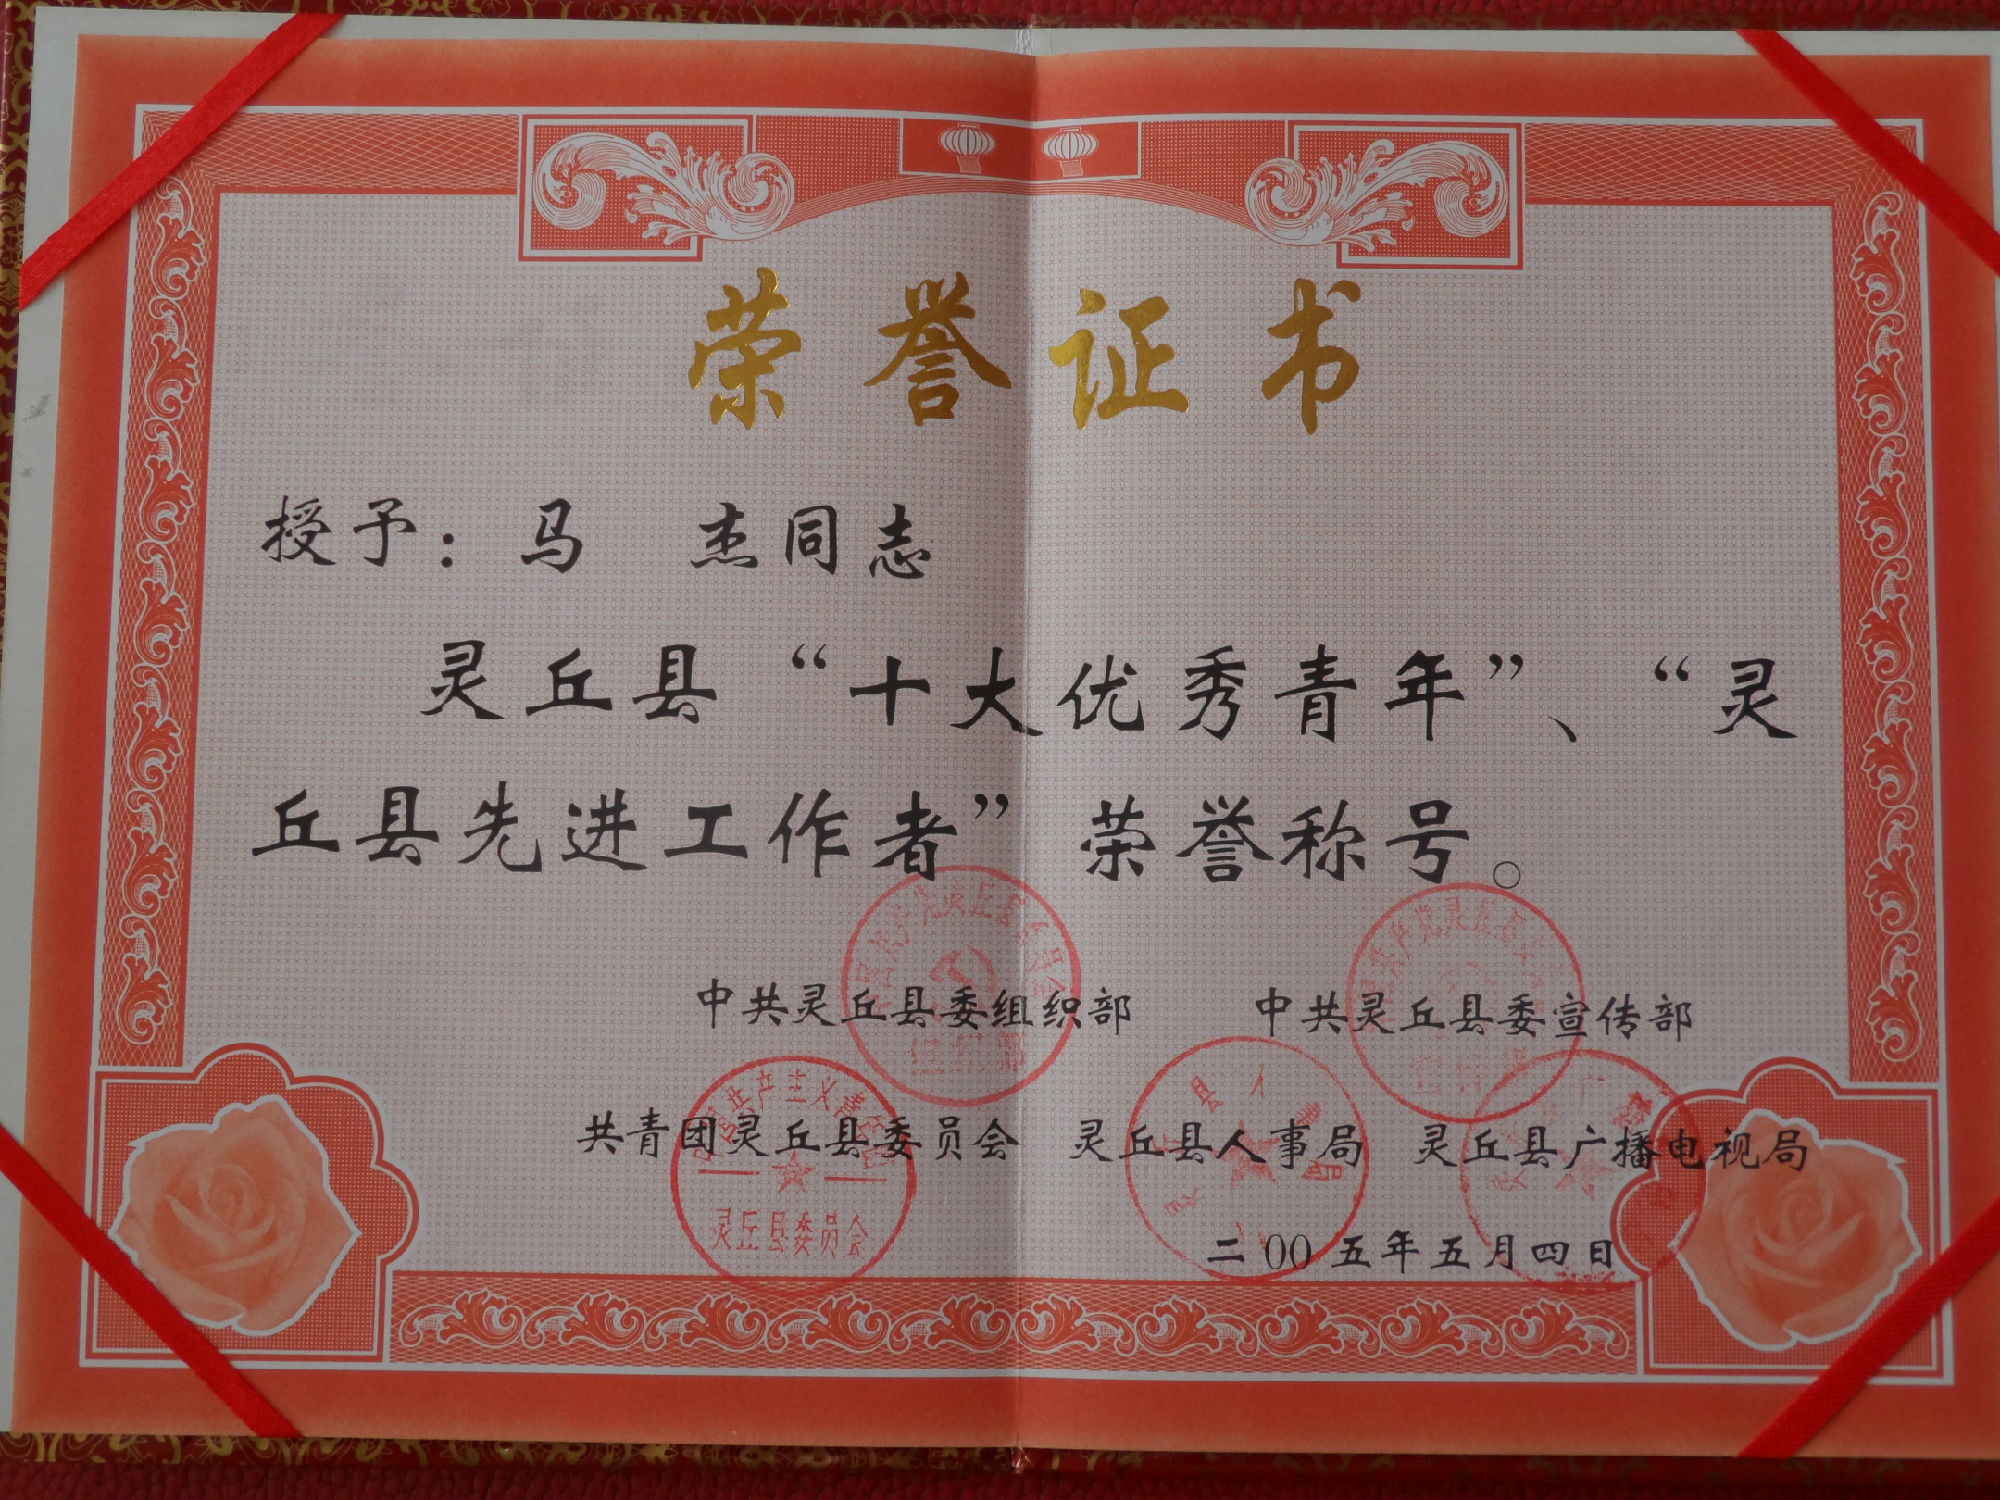 荣誉证书
授予：马 杰同志
灵丘县“十大优秀青年”、“灵
丘县先进工作者”荣誉称号。
中共灵丘县委组织部 中共灵丘县委宣传部
共青团灵丘县委员会 灵丘县人事局 灵丘县广播电视局
二00五年五月四日
灵丘县委员会